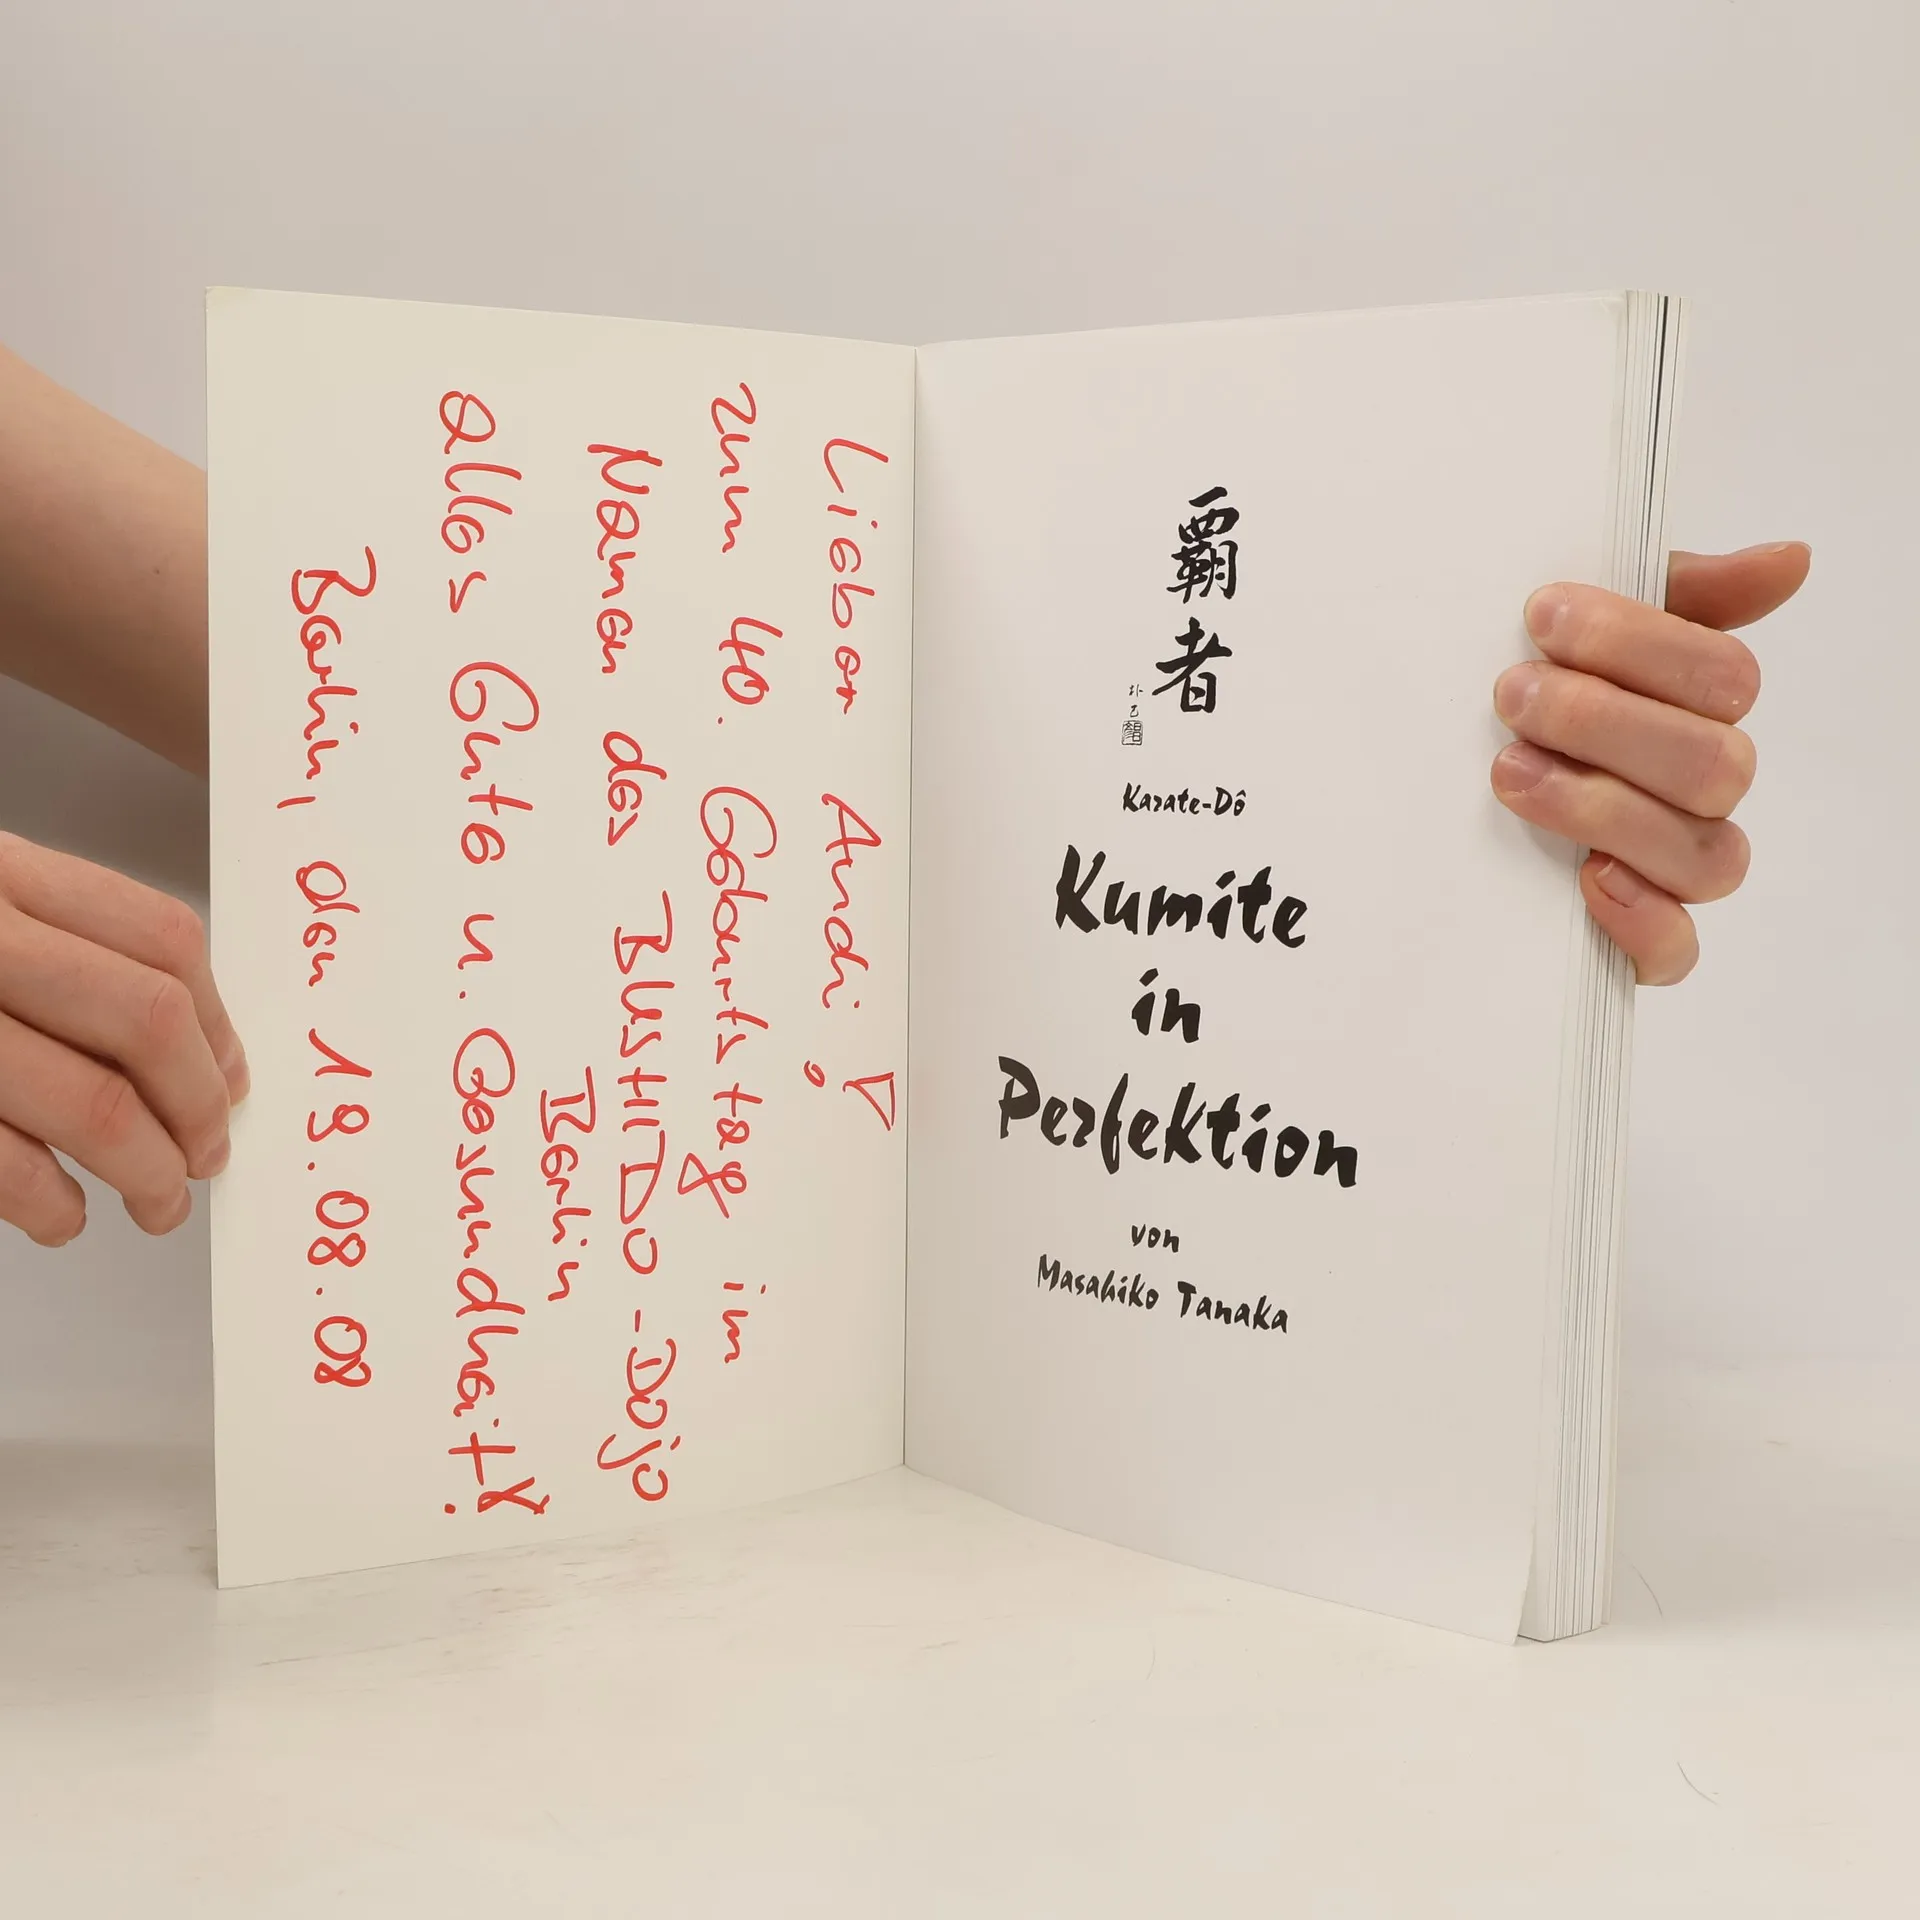 Lieber Andi!
zum 40. Geburtstag im
Namen des BUSHIDO-Dojo
Berlin
alles Gute u. Gesundheit!
Berlin, den 19.08.08
覇者
Karate-Dô
Kumite
in
Perfektion
von
Masahiko Tanaka